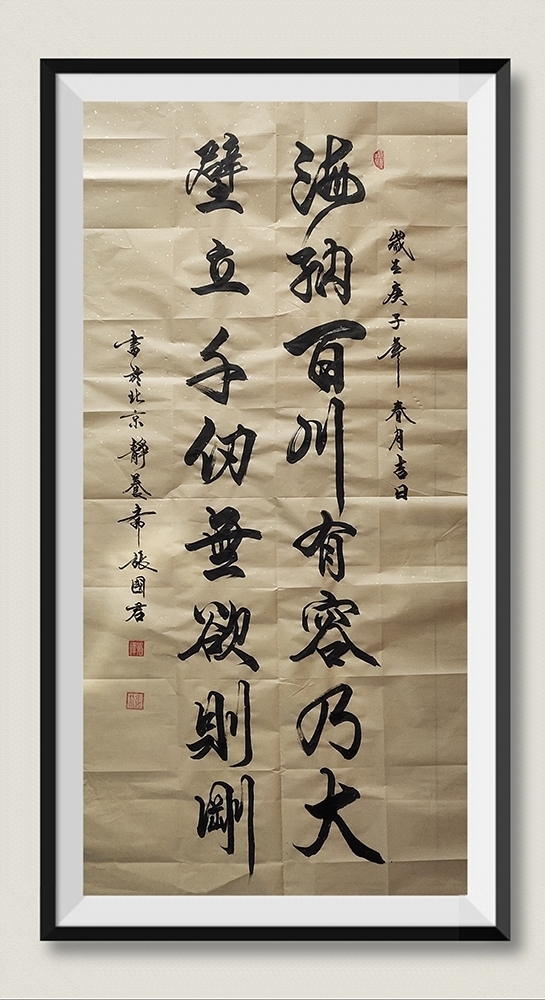 歲在庚子年 春月吉日
海納百川有容乃大
壁立千仞無欲則剛
書於北京靜養齋張國君